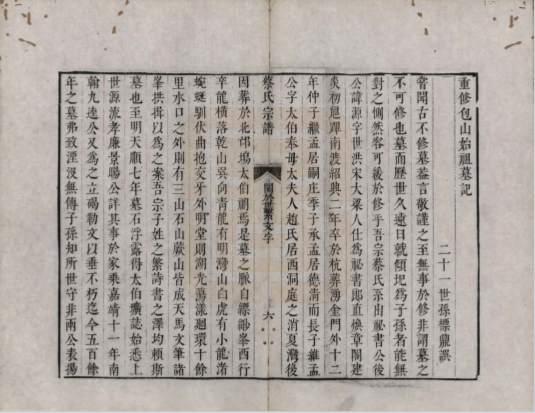 重修包山始祖墓記
二十一世孫標龍譔
嘗聞古不修墓葢言敬謹之至無事於修非謂墓之
不可修也墓而歷世久遠日就頹圯為子孫者能無
對之惻然客可緩於修乎吾宗蔡氏系出秘書公後
公諱源字世洪宋大梁人仕為秘書郎直煥章閣建
炎初扈蹕南渡紹興二年卒於杭葬湧金門外十二
年仲子繼孟居嗣庄季子承孟居德清而長子維孟
公字太伯奉母太夫人趙氏居西洞庭之消夏灣後
蔡氏宗譜
關於墓系文字
上
六
因葬於北邙塢太伯祔焉是墓之脈自縹緲峯西行
辛龍橫落乾山巽向青龍有明灣山白虎有小龍渚
蜿蜒馴伏曲抱交牙外明堂則湖光蕩漾廻環十餘
里水口之外則有三山石山厥山皆成天馬文筆諸
峯拱揖以為之案吾宗子姓之繁詩書之澤均賴斯
墓也至明天順七年墓石浮露得太伯壙誌始悉上
世源流孝廉景陽公詳其事於家乘嘉靖十一年南
翰九逵公又為之立碣勒文以垂不朽迄今五百餘
年之墓弗致湮沒無傳子孫知所世守非兩公表揚